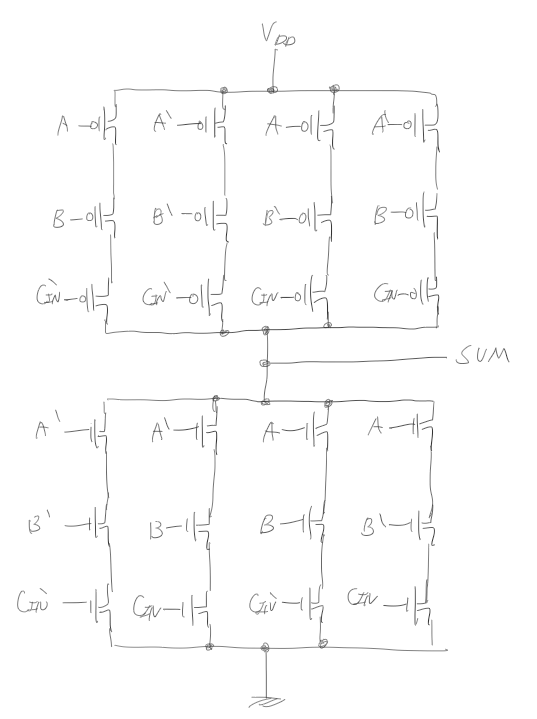 VDD
A A' A A'
B B' B' B
CIN' CIN' CIN CIN
SUM
A' A' A A
B' B B B'
CIN' CIN CIN' CIN